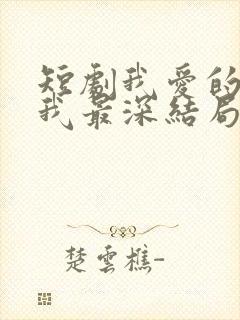 短劇我愛的
我最深結局
楚雲樵-